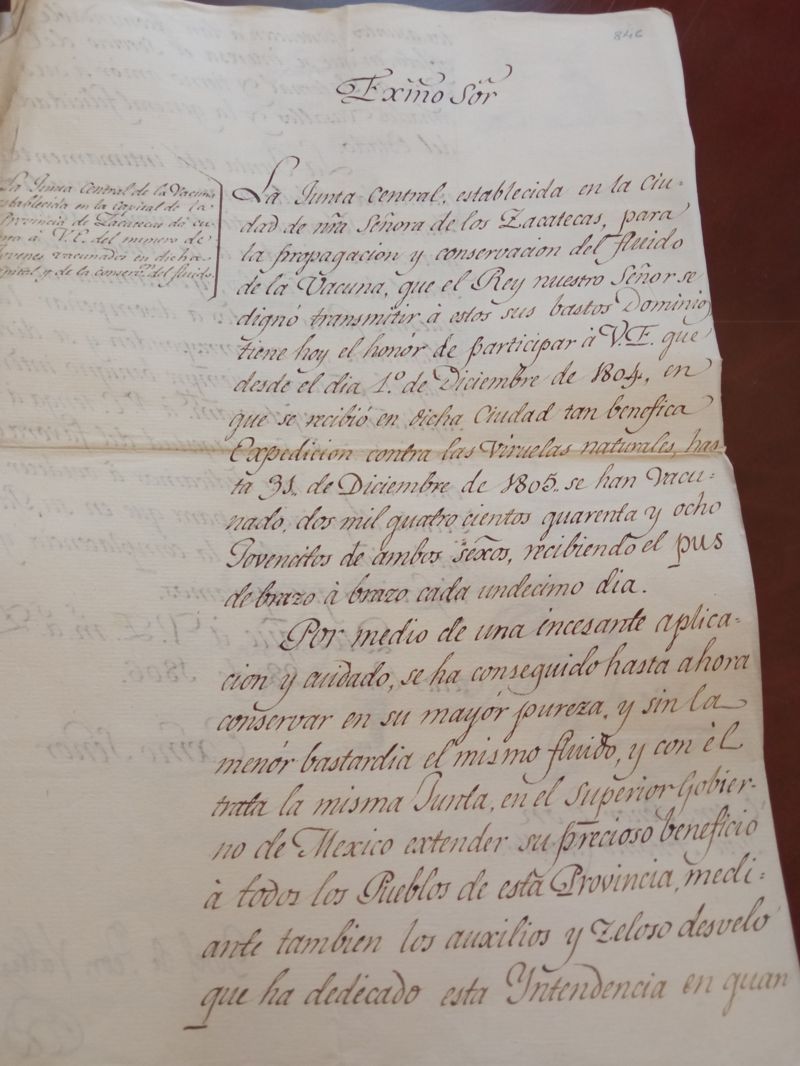 846
Exm̃o Sõr
La Junta Central de la Vacuna
establecida en la capital de la
Provincia de Zacatecas dá cu
à V.E. del numero de
jovenes vacunados en dicha
pital y de la conserv.on del fluido.
La Junta Central, establecida en la Ciu-
dad de nrã Señora de los Zacatecas, para
la propagacion y conservacion del fluido
de la Vacuna, que el Rey nuestro Señor se
dignó transmitir à estos sus bastos Dominios
tiene hoy el honór de participar à V.E. que
desde el dia 1.º de Diciembre de 1804, en
que se recibió en dicha Ciudad tan benefica
Expedicion contra las Viruelas naturales, has-
ta 31. de Diciembre de 1805. se han Vacu-
nado, dos mil quatro cientos quarenta y ocho
Jovencitos de ambos séxos, recibiendo el pus
de brazo à brazo cada undecimo dia.
Por medio de una incesante aplica-
cion y cuidado, se ha conseguido hasta ahora
conservar en su mayór pureza, y sin la
menór bastardia el mismo fluido, y con èl
trata la misma Junta, en el Superior Gobier-
no de Mexico extender su precioso beneficio
à todos los Pueblos de esta Provincia, medi-
ante tambien los auxilios y Zeloso desvelo
que ha dedecado esta Yntendencia en quan